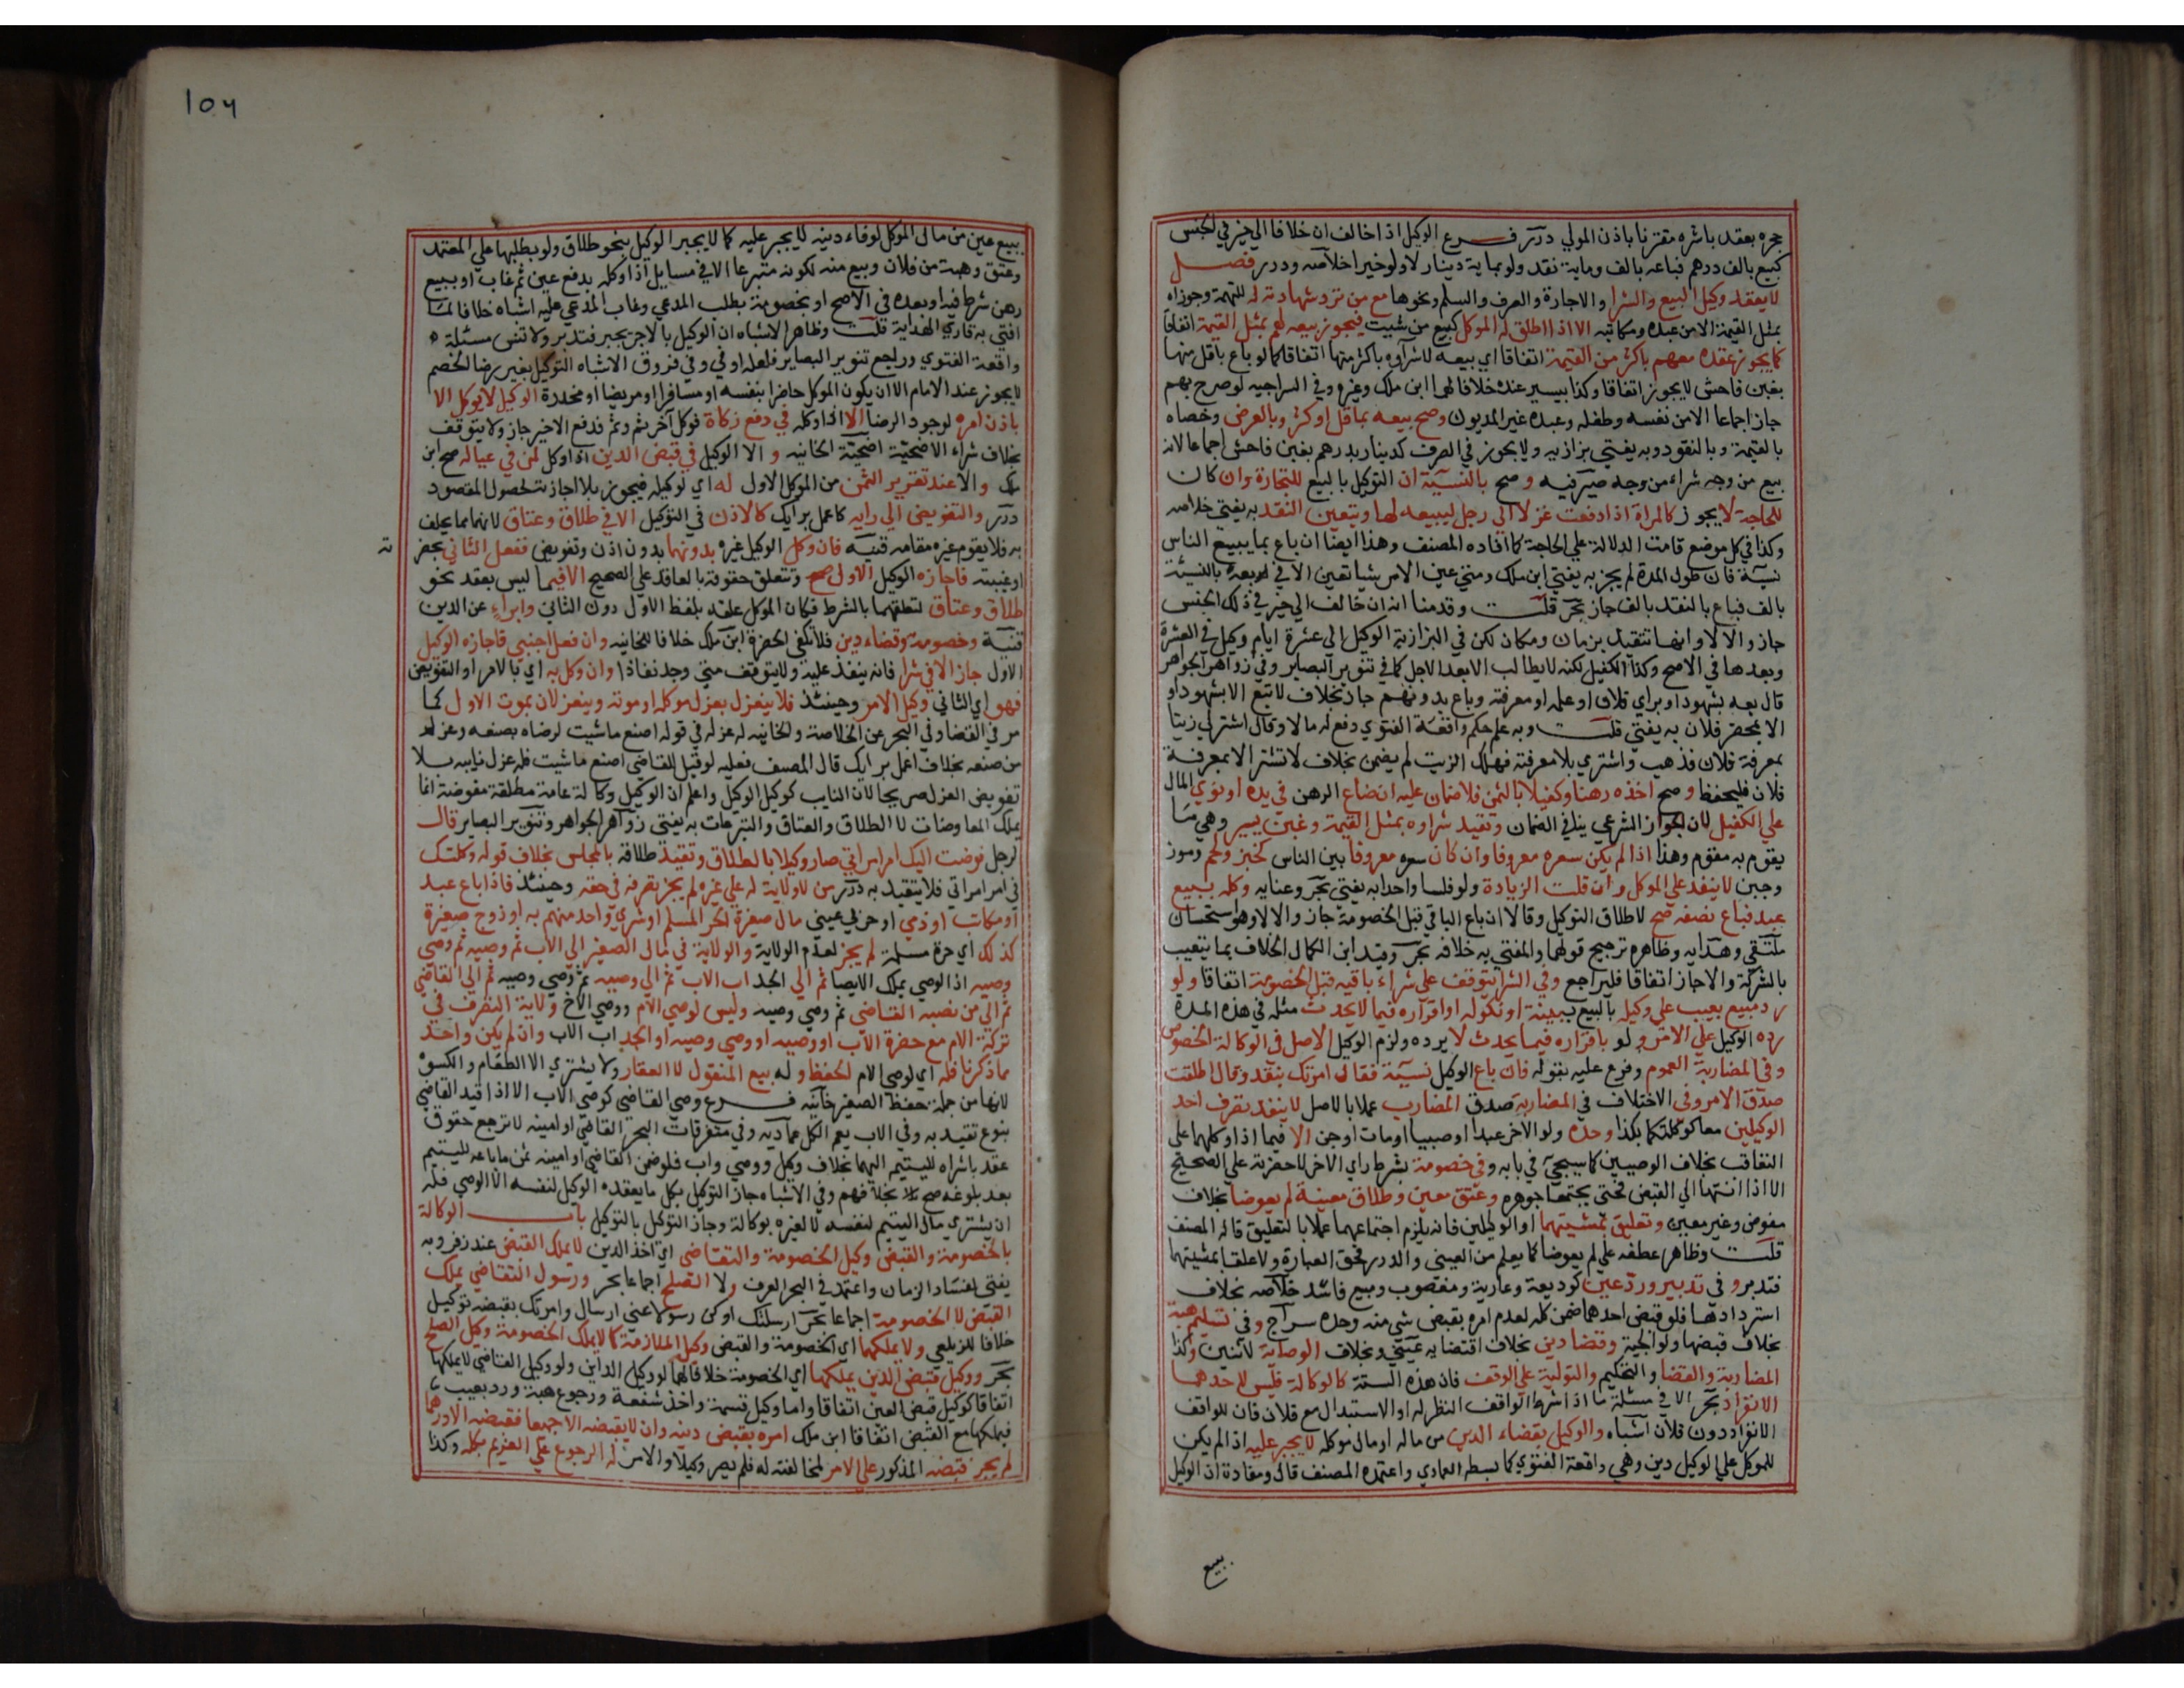 حجره بعقد باشره مقترنا باذن المولي درر فرع الوكيل اذا خالف ان خلافا الي خير في الجنس
كبيع بالف درهم فباعه بالف وماية نقد ولو بماية دينار لا ولو خيرا خلاصه ودرر فصل
لا يعقد وكيل البيع والشرا والاجارة والصرف والسلم ونحوها مع من ترد شهادته له للتهمة وجوزاه
بمثل القيمة الا من عبده ومكاتبه الا اذا اطلق له الموكل كبيع من شيت فيجوز بيعه لهم بمثل القيمة اتفاقا
كما يجوز عقده معهم باكثر من القيمة اتفاقا اي بيعه لا شراوه باكثر منها اتفاقا كما لو باع باقل منها
بغبن فاحش لا يجوز اتفاقا وكذا بيسير عنده خلافا لهما ابن ملك وغيره وفي السراجيه لو صرح بهم
جاز اجماعا الا من نفسه وطفله وعبده غير المديون وصح بيعه بما قل او كثر وبالعرض وخصاه
بالقيمة وبالنقود وبه يفتي بزازيه ولا يجوز في الصرف كدينار بدرهم بغبن فاحش اجماعا لانه
بيع من وجه شراء من وجه صيرفيه وصح بالنسيئة ان التوكيل بالبيع للتجارة وان كان
للحاجة لا يجوز كالمراة اذا دفعت غزلا الي رجل ليبيعه لها ويتعين النقد به يفتي خلاصه
وكذا في كل موضع قامت الدلالة علي الحاجة كما افاده المصنف وهذا ايضا ان باع بما يبيع الناس
نسيئة فان طول المدة لم يجز به يفتي ابن ملك ومتي عين الامر شيا تعين الا في بعه بالنسيئة
بالف فباع بالنقد بالف جاز بحر قلت وقدمنا انه ان خالف الي خير في ذلك الجنس
جاز والا لا وانها تتقيد بزمان ومكان لكن في البزازية الوكيل الي عشرة ايام وكيل في العشرة
وبعدها في الاصح وكذا الكفيل لكنه لا يطالب الا بعد الاجل كما في تنوير البصاير وفي زواهر الجواهر
قال بعه بشهود او براي فلان او علمه او معرفته وباع بدونهم جاز بخلاف لا تبع الا بشهود او
الا بمحضر فلان به يفتي قلت وبه علم حكم واقعة الفتوي دفع له مالا وقال اشتر لي زيتا
بمعرفة فلان فذهب واشتري بلا معرفته فهلك الزيت لم يضمن بخلاف لا تشتر الا بمعرفة
فلان فليحفظ وصح اخذه رهنا وكفيلا بالثمن فلا ضمان عليه ان ضاع الرهن في يده او توي المال
علي الكفيل لان الجواز الشرعي ينافي الضمان وتقيد شراوه بمثل القيمة وغبن يسير وهي ما
يقوم به مقوم وهذا اذا لم يكن سعره معروفا وان كان سعره معروفا بين الناس كخبز ولحم وموز
وجبن لا ينفذ علي الموكل وان قلت الزيادة ولو فلسا واحدا به يفتي بحر وعنايه وكله ببيع
عبد فباع نصفه صح لاطلاق التوكيل وقالا ان باع الباقي قبل الخصومة جاز والا لا وهو استحسان
ملتقي وهدايه وظاهره ترجيح قولهما والمفتي به خلافه بحر وقيد ابن الكمال الخلاف بما يتعيب
بالشركة والا جاز اتفاقا فليراجع وفي الشرا يتوقف علي شراء باقيه قبل الخصومة اتفاقا ولو
رد مبيع بعيب علي وكيله بالبيع ببينة او نكوله او اقراره فيما لا يحدث مثله في هذه المدة
رده الوكيل علي الامر ولو باقراره فيما يحدث لا يرده ولزم الوكيل الاصل في الوكالة الخصوص
وفي المضاربة العموم وفرع عليه بقوله فان باع الوكيل نسيئة فقال امرتك بنقد وقال اطلقت
صدق الامر وفي الاختلاف في المضاربة صدق المضارب عملا بالاصل لا ينفذ تصرف احد
الوكيلين معا كوكلتكما بكذا وحده ولو الاخر عبدا او صبيا او مات او جن الا فيما اذا وكلهما علي
التعاقب بخلاف الوصيين كما سيجيء في بابه وفي خصومة بشرط راي الاخر لا حضرته علي الصحيح
الا اذا انتهيا الي القبض فحتي يجتمعا جوهره وعتق معين وطلاق معينة لم يعوضا بخلاف
معوض وغير معين وتعليق بمشيتهما او الوكيلين فانه يلزم اجتماعهما عملا بالتعليق قاله المصنف
قلت وظاهر عطفه علي لم يعوضا كما يعلم من العيني والدرر فحق العبارة ولا علقا بمشيتهما
فتدبر وفي تدبير ورد عين كوديعة وعارية ومغصوب ومبيع فاسد خلاصه بخلاف
استردادها فلو قبض احدهما ضمن كله لعدم امره بقبض شي منه وحده سراج وفي تسليم هبة
بخلاف قبضها ولوالجية وقضا دين بخلاف اقتضايه عيني وبخلاف الوصاية لاثنين وكذا
المضاربة والقضا والتحكيم والتولية علي الوقف فان هذه الستة كالوكالة فليس لاحدهما
الانفراد بحر الا في مسئلة ما اذا شرط الواقف النظر له او الاستبدال مع فلان فان للواقف
الانفراد دون فلان اشباه والوكيل بقضاء الدين من ماله او مال موكله لا يجبر عليه اذا لم يكن
للموكل علي الوكيل دين وهي واقعة الفتوي كما بسطه العمادي واعتمده المصنف قال ومفاده ان الوكيل
ببيع
١٥٦
ببيع عين من مال الموكل لوفاء دينه لا يجبر عليه كما لا يجبر الوكيل بنحو طلاق ولو بطلبها علي المعتمد
وعتق وهبة من فلان وبيع منه لكونه متبرعا الا في مسايل اذا وكله بدفع عين ثم غاب او ببيع
رهن شرط فيه او بعده في الاصح او بخصومة بطلب المدعي وغاب المدعي عليه اشباه خلافا لما
افتي به قاري الهداية قلت وظاهر الاشباه ان الوكيل بالاجر يجبر فتدبر ولا تنس مسئلة
واقعة الفتوي وراجع تنوير البصاير فلعله اوفي وفي فروق الاشباه التوكيل بغير رضا الخصم
لا يجوز عند الامام الا ان يكون الموكل حاضرا بنفسه او مسافرا او مريضا او مخدرة الوكيل لا يوكل الا
باذن امره لوجود الرضا الا اذا وكله في دفع زكاة فوكل آخر ثم وثم فدفع الاخير جاز ولا يتوقف
بخلاف شراء الاضحيّة اضحيّة الخانيه و الا الوكيل في قبض الدين اذا وكل لمن في عياله صح ابن
ملك والا عند تقرير الثمن من الموكل الاول له اي لوكيله فيجوز بلا اجازته لحصول المقصود
درر والتفويض الي رايه كاعمل برايك كالاذن في التوكيل الا في طلاق وعتاق لانهما مما يحلف
به فلا يقوم غيره مقامه قنيه فان وكل الوكيل غيره بدونهما بدون اذن وتفويض ففعل الثاني بحضر
ته
او غيبته فاجازه الوكيل الاول صح وتتعلق حقوقه بالعاقد علي الصحيح الا فيما ليس بعقد نحو
طلاق وعتاق لتعلقهما بالشرط فكان الموكل علقه بلفظ الاول دون الثاني وابراء عن الدين
قنية وخصومة وقضاء دين فلا تكفي الحضرة ابن ملك خلافا للخانيه وان فعل اجنبي فاجازه الوكيل
الاول جاز الا في شرا فانه ينفذ عليه ولا يتوقف متي وجد نفاذا وان وكل به اي بالامر او التفويض
فهو اي الثاني وكيل الامر وحينئذ فلا ينعزل بعزل موكله او موته وينعزلان بموت الاول كما
مر في القضا وفي البحر عن الخلاصة والخانيه له عزله في قوله اصنع ما شيت لرضاه بصنعه وعزله
من صنعه بخلاف اعمل برايك قال المصنف فعليه لو قيل للقاضي اصنع ما شيت فله عزل نايبه بلا
تفويض العزل صريحا لان النايب كوكيل الوكيل واعلم ان الوكيل وكالة عامة مطلقة مفوضة انما
يملك المعاوضات لا الطلاق والعتاق والتبرعات به يفتي زواهر الجواهر وتنوير البصاير قال
لرجل فوضت اليك امر امراتي صار وكيلا بالطلاق وتقيد طلاقه بالمجلس بخلاف قوله وكلتك
في امر امراتي فلا يتقيد به درر من لا ولاية له علي غيره لم يجز تصرفه في حقه وحينئذ فاذا باع عبد
او مكاتب او ذمي او حربي عيني مال صغيرة الحر المسلم او شري واحد منهم به او زوج صغيرة
كذلك اي حرة مسلمة لم يجز لعدم الولاية والولاية في مال الصغير الي الاب ثم وصيه ثم وصي
وصيه اذ الوصي يملك الايصا ثم الي الجد اب الاب ثم الي وصيه ثم وصي وصيه ثم الي القاضي
ثم الي من نصبه القاضي ثم وصي وصيه وليس لوصي الام ووصي الاخ ولاية التصرف في
تركة الام مع حضرة الاب او وصيه او وصي وصيه او الجد اب الاب وان لم يكن واحد
مما ذكرنا فله اي لوصي الام الحفظ و له بيع المنقول لا العقار ولا يشتري الا الطعام والكسوة
لانها من جملة حفظ الصغير خانيه فرع وصي القاضي كوصي الاب الا اذا قيد القاضي
بنوع تقيد به وفي الاب يعم الكل عماديه وفي متفرقات البحر القاضي او امينه لا ترجع حقوق
عقد باشراه لليتيم اليهما بخلاف وكيل ووصي واب فلو ضمن القاضي او امينه ثمن ما باعه لليتيم
بعد بلوغه صح بخلافهم وفي الاشباه جاز التوكيل بكل ما يعقده الوكيل لنفسه الا الوصي فله
ان يشتري مال اليتيم لنفسه لا لغيره بوكالة وجاز التوكيل بالتوكيل باب الوكالة
بالخصومة والقبض وكيل الخصومة والتقاضي اي اخذ الدين لا يملك القبض عند زفر وبه
يفتي لفساد الزمان واعتمد في البحر العرف ولا الصلح اجماعا بحر ورسول التقاضي يملك
القبض لا الخصومة اجماعا بحر ارسلتك او كن رسولا عني ارسال وامرتك بقبضه توكيل
خلافا للزيلعي ولا يملكهما اي الخصومة والقبض وكيل الملازمة كما لا يملك الخصومة وكيل الصلح
بحر ووكيل قبض الدين يملكهما اي الخصومة خلافا لهما لو وكيل الداين ولو وكيل القاضي لا يملكها
اتفاقا كوكيل قبض العين اتفاقا واما وكيل قسمة واخذ شفعة ورجوع هبة ورد بعيب
فيملكها مع القبض اتفاقا ابن ملك امره بقبض دينه وان لا يقبضه الا جميعا فقبضه الا درهما
لم يجز قبضه المذكور علي الامر لمخالفته له فلم يصر وكيلا والامر له الرجوع علي الغريم بكله وكذا